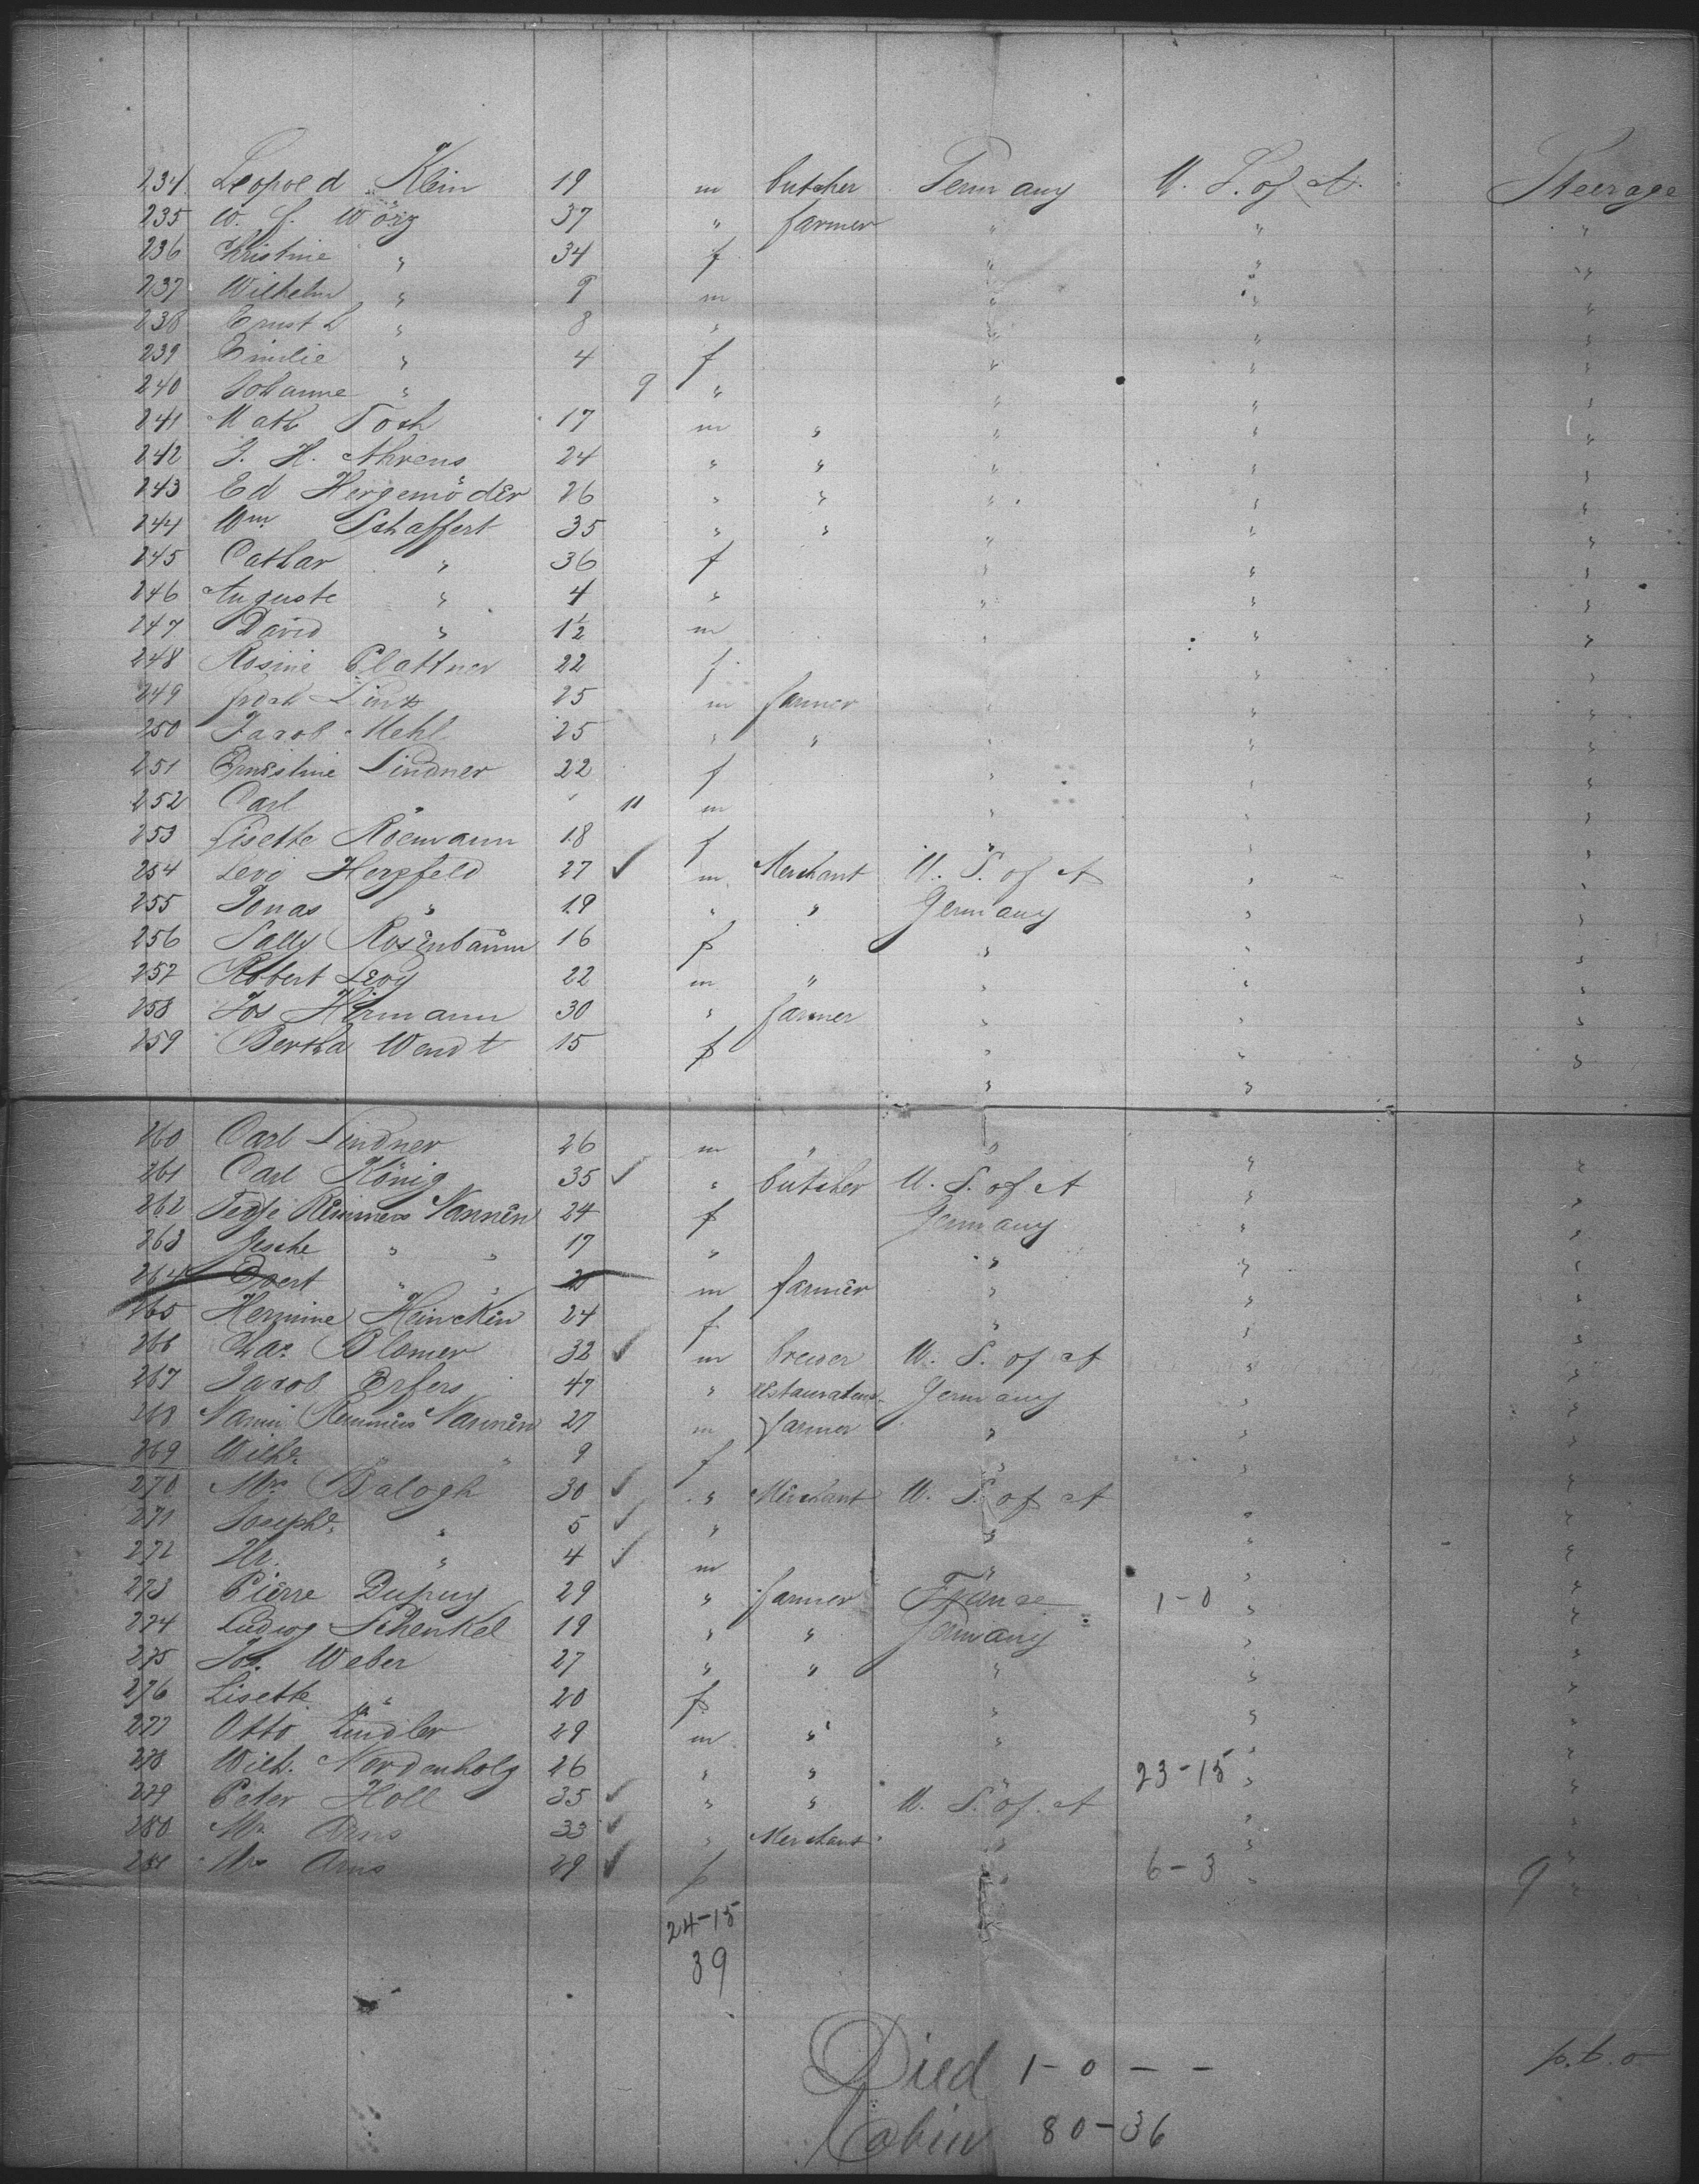 234 Leopold Klein 19 m butcher Germany U. S. of A. Steerage
235 W. L. Wörz 37 " farmer " " "
236 Christine " 34 f " " "
237 Wilhelm " 9 m " " "
238 Ernst L " 8 " " " "
239 Emilie " 4 f " " "
240 Johanne " 9 " " " "
241 Math Toch 17 m " " " "
242 J. H. Ahrens 24 " " " " "
243 Ed Hergemöder 26 " " " " "
244 Wm Schaffert 35 " " " " "
245 Cathar " 36 f " " "
246 Auguste " 4 " " " "
247 David " 1½ m " " "
248 Rosine Plattner 22 f " " "
249 Linz 25 m farmer " " "
250 Jacob Mehl 25 " " " " "
251 Ernestine Lindner 22 f " " "
252 Carl " " 11 m " " "
253 Lisette Röemann 18 f " " "
254 Levi Herzfeld 27 ✓ m Merchant U. S. of A " "
255 Jonas " 19 " " Germany " "
256 Sally Rosenbaum 16 f " " "
257 Robert Levy 22 m " " " "
258 Jos Hermann 30 " farmer " " "
259 Bertha Wendt 15 f " " "
" "
260 Carl Lindner 26 m " " " "
261 Carl König 35 ✓ " butcher U. S. of A " "
262 Tedje Remmers Nannen 24 f Germany " "
263 Gesche " " 17 " " " "
264 " " 21 m farmer " " "
265 Hermine Heincken 24 f " " "
266 Chas Blomer 32 ✓ m brewer U. S. of A " "
267 Jacob Erfers 47 " restaurateur Germany " "
268 Nanni Remmers Nannen 27 m farmer " " "
269 Wilhe " " 9 f " " "
270 Mrs Balogh 30 ✓ " Merchant U. S. of A "
271 Josephe " 5 ✓ " " " "
272 " 4 ✓ m " " "
273 Pierre Dupuy 29 " farmer France 1-0 " "
274 Ludwig Schenkel 19 " " Germany " "
275 Jos. Weber 27 " " " " "
276 Lisette " 20 f " " "
277 Otto Lindler 29 m " " " "
278 Wilh. Nordenholz 26 " " " 23-15 " "
279 Peter Holl 35 ✓ " " U. S. of A " "
280 Mr Arns 33 ✓ " Merchant " " "
281 Mrs Arns 29 ✓ f " 6-3 " 9 "
24-15
39
Died 1-0 - -
p.t.o
Cabin 80-36